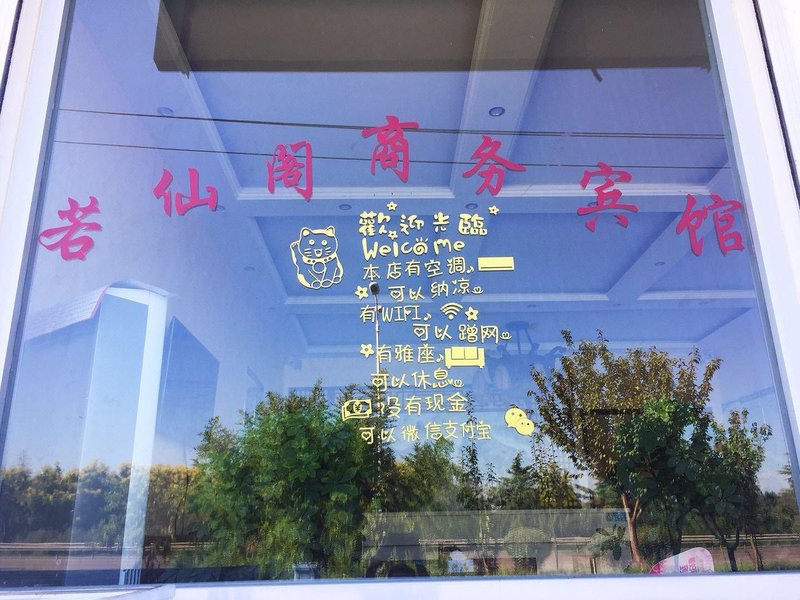 若仙阁商务宾馆
歡迎光臨
Welcome
本店有空调
可以纳凉
有WIFI
可以蹭网
有雅座
可以休息
没有现金
可以微信支付宝